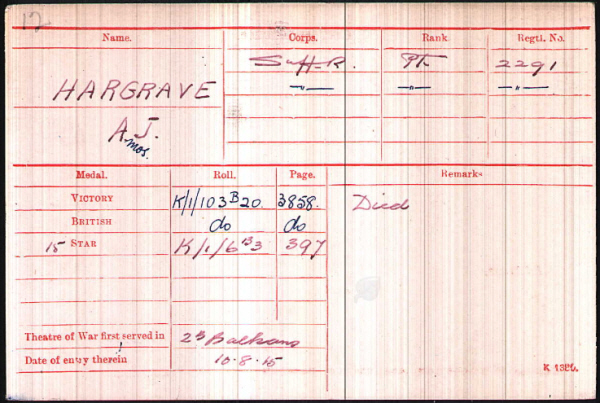 12
Name. Corps. Rank. Regtl. No.
HARGRAVE Suff. R. Pte. 2291
A. J. —"— —"— —"—
mos.
Medal. Roll. Page. Remarks
VICTORY K/1/103 B20. 3858. Died
BRITISH do do
15 STAR K/1/6 B3 397
Theatre of War first served in 2B Balkans
Date of entry therein 10.8.15
K 1380.